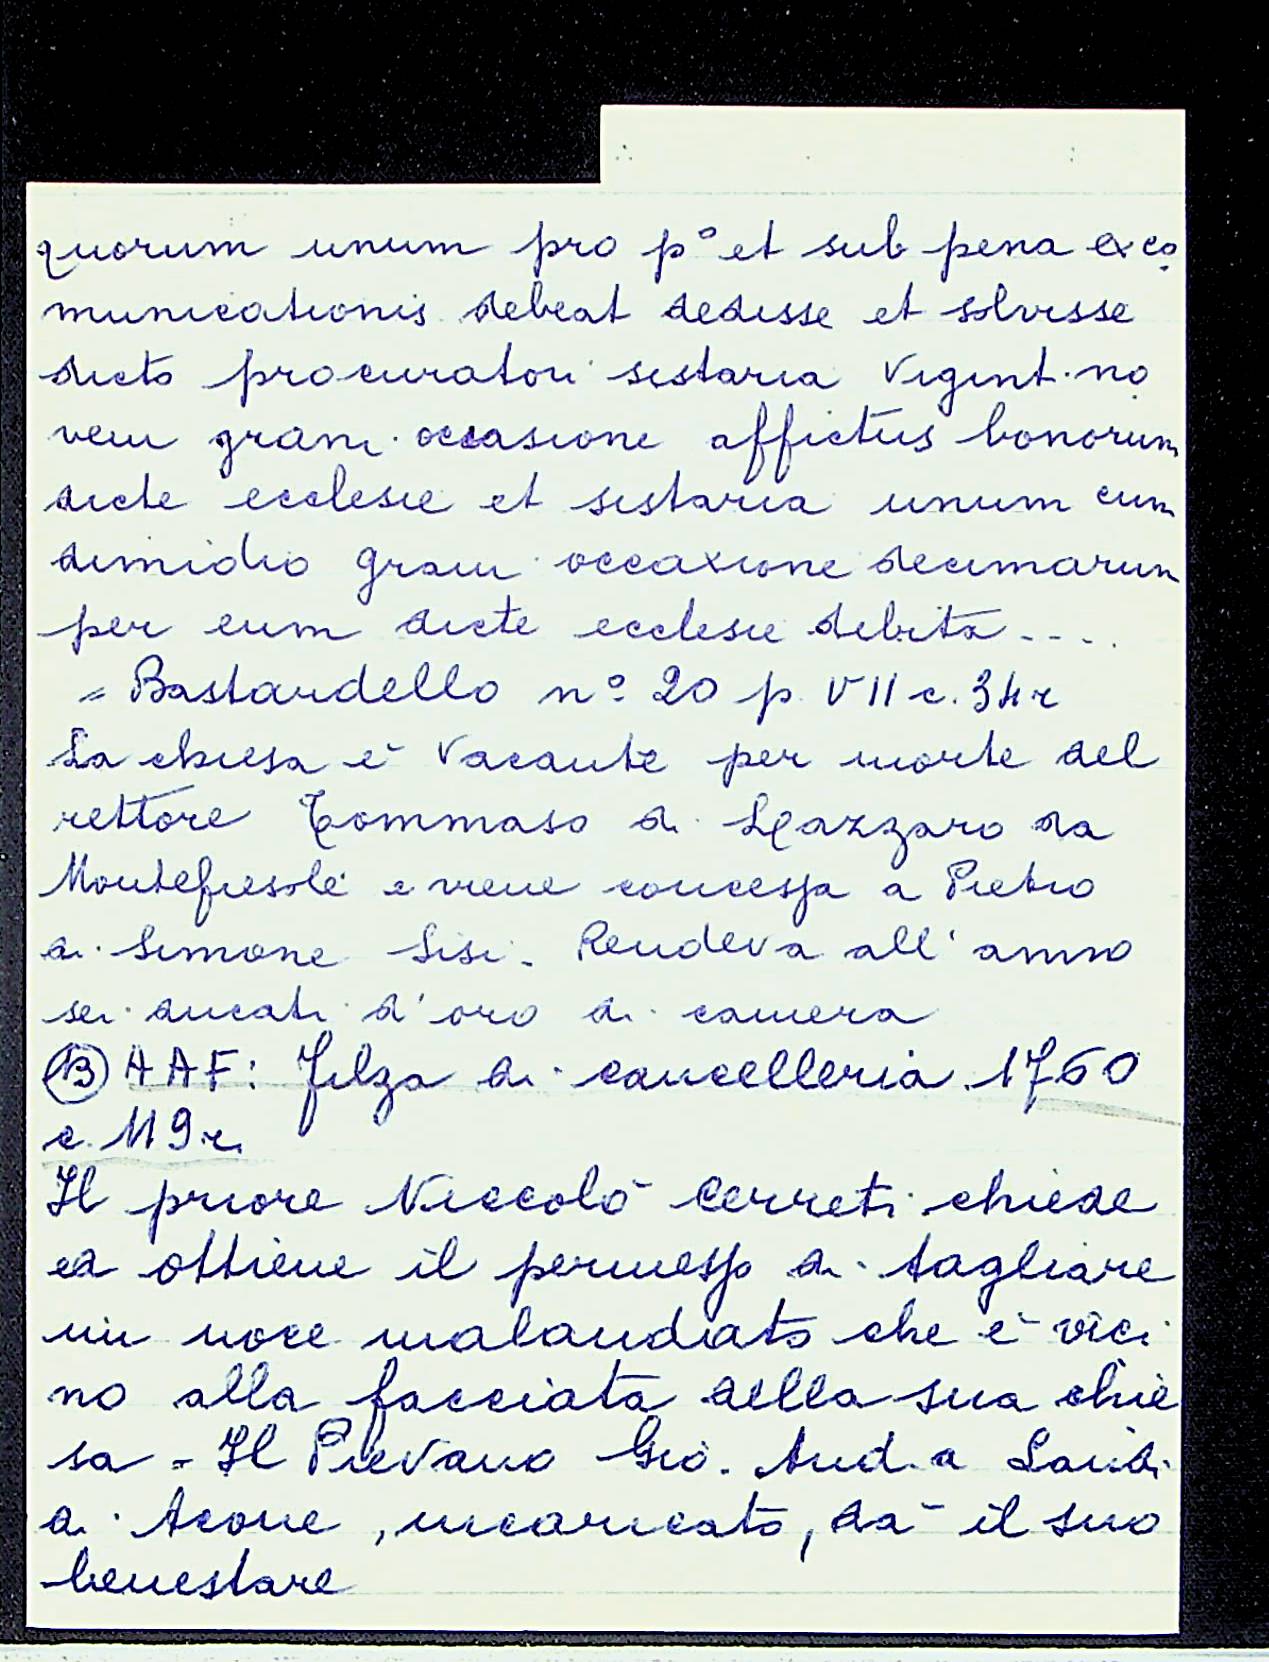 quorum unum pro p° et sub pena exco
municationis debeat dedisse et solvisse
dicto procuratori sistaria vigint. no
vem grani occasione affictus bonorum
dicte ecclesie et sistaria unum cum
dimidio grani occaxione decimarum
per eum dicte ecclesie debita ....
= Bastardello n° 20 p. VII c. 34 r
La chiesa è vacante per morte del
rettore Tommaso di Lazzaro da
Montefiesole e viene concessa a Pietro
di Simone Sisi. Rendeva all'anno
sei ducati d'oro di camera
(13) AAF: Filza di cancelleria 1760
c. 119 r.
Il priore Niccolò Cerreti chiede
ed ottiene il permesso di tagliare
un noce malandato che è vici
no alla facciata della sua chie
sa = Il Pievano Gio. And.a Landi
di Acone, incaricato, dà il suo
benestare